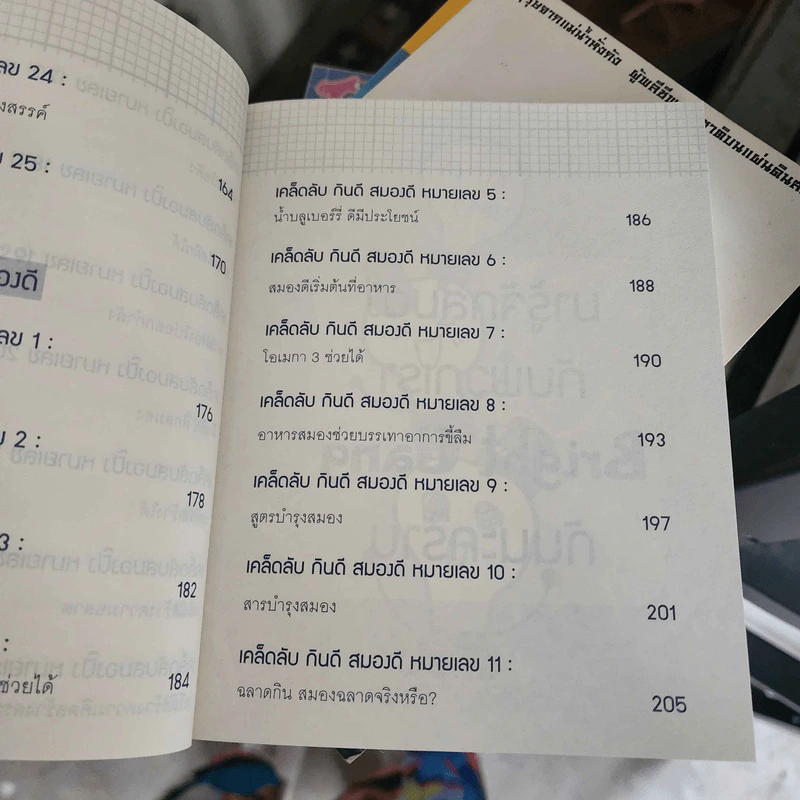 ลข 24 :
งสรรค์
164
25 :
170
องดี
ลข 1 :
176
2 :
178
3 :
182
:
ช่วยได้ 184
เคล็ดลับ กินดี สมองดี หมายเลข 5 :
น้ำบลูเบอร์รี่ ดีมีประโยชน์ 186
เคล็ดลับ กินดี สมองดี หมายเลข 6 :
สมองดีเริ่มต้นที่อาหาร 188
เคล็ดลับ กินดี สมองดี หมายเลข 7 :
โอเมกา 3 ช่วยได้ 190
เคล็ดลับ กินดี สมองดี หมายเลข 8 :
อาหารสมองช่วยบรรเทาอาการขี้ลืม 193
เคล็ดลับ กินดี สมองดี หมายเลข 9 :
สูตรบำรุงสมอง 197
เคล็ดลับ กินดี สมองดี หมายเลข 10 :
สารบำรุงสมอง 201
เคล็ดลับ กินดี สมองดี หมายเลข 11 :
ฉลาดกิน สมองฉลาดจริงหรือ? 205